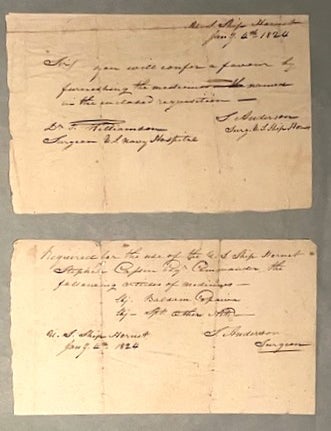 U.S. Ship Hornet
Jany 4th 1824
Sir you will confer a favour by
furnishing the medicines named
in the enclosed requisition —
S Anderson
Surg. U S Ship Hornet
Dr T. Williamson
Surgeon U.S Navy Hospital
Required for the use of the U S Ship Hornet
Stephen Cassin Esqr Commander the
following articles of medicines —
Balsam Copaiva
Ether
U. S. Ship Hornet
Jany 4th 1824
S Anderson
Surgeon